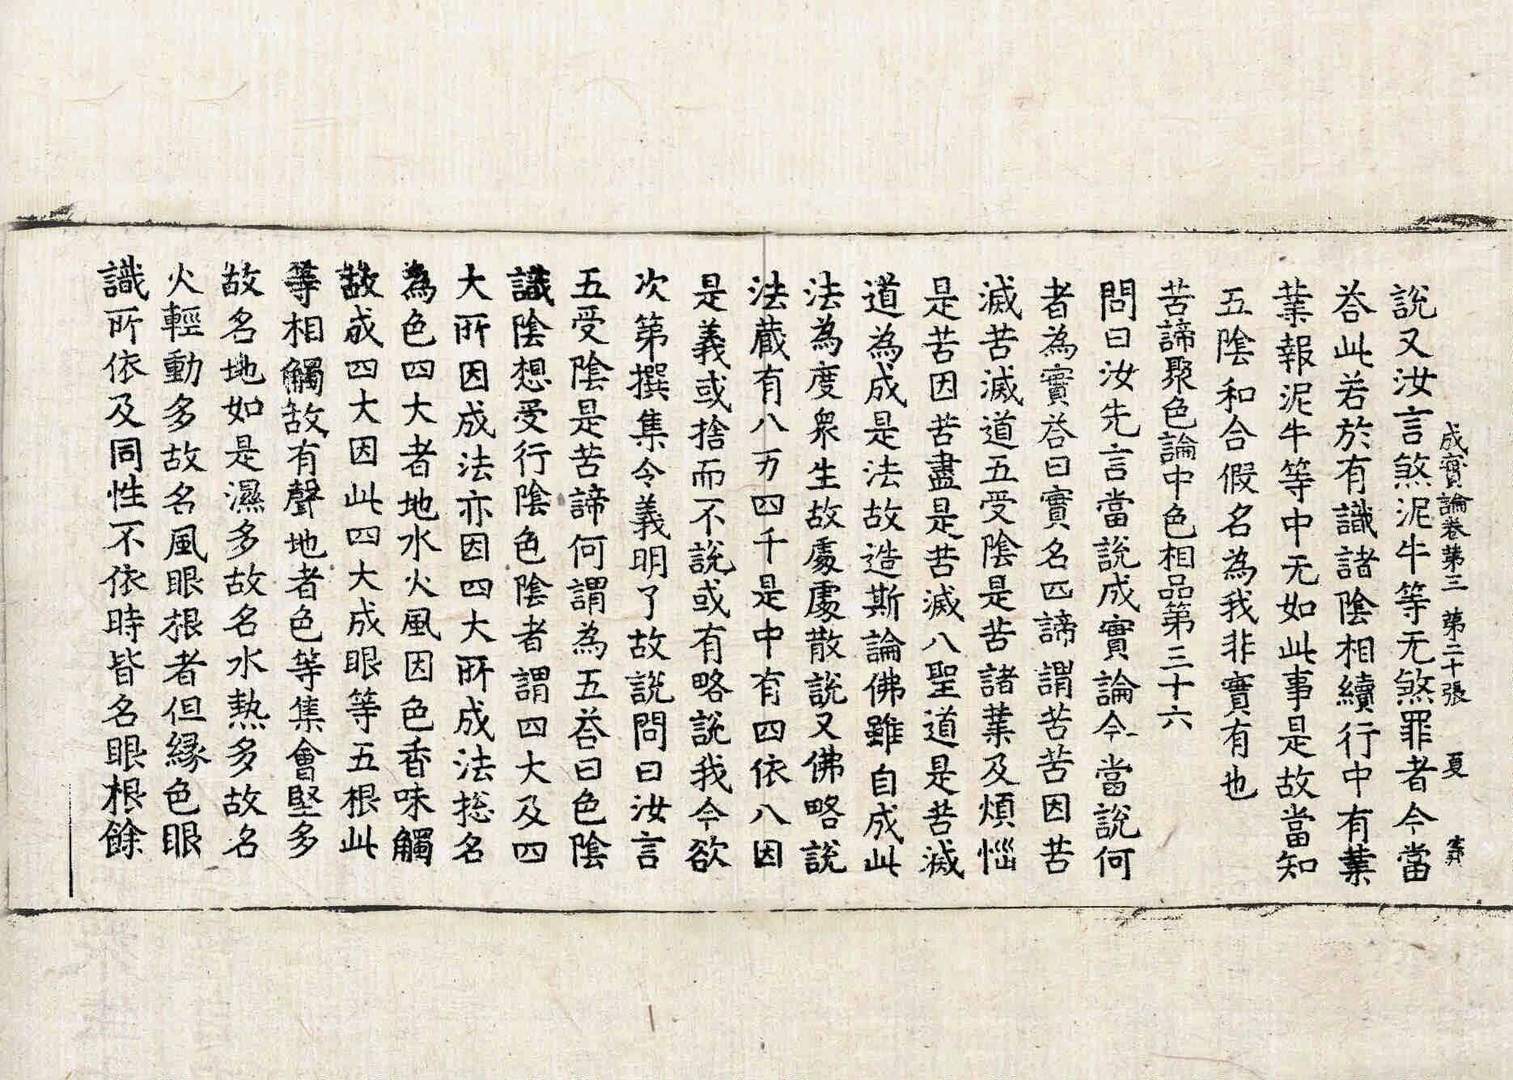 成實論卷第三 第二十張 夏
說又汝言煞泥牛等无煞罪者今當
荅此若於有識諸陰相續行中有業
業報泥牛等中无如此事是故當知
五陰和合假名為我非實有也
苦諦聚色論中色相品第三十六
問曰汝先言當說成實論今當說何
者為實荅曰實名四諦謂苦苦因苦
滅苦滅道五受陰是苦諸業及煩惱
是苦因苦盡是苦滅八聖道是苦滅
道為成是法故造斯論佛雖自成此
法為度衆生故處處散說又佛略說
法藏有八万四千是中有四依八因
是義或捨而不說或有略說我今欲
次第撰集令義明了故說問曰汝言
五受陰是苦諦何謂為五荅曰色陰
識陰想受行陰色陰者謂四大及四
大所因成法亦因四大所成法捴名
為色四大者地水火風因色香味觸
故成四大因此四大成眼等五根此
等相觸故有聲地者色等集會堅多
故名地如是濕多故名水熱多故名
火輕動多故名風眼根者但緣色眼
識所依及同性不依時皆名眼根餘